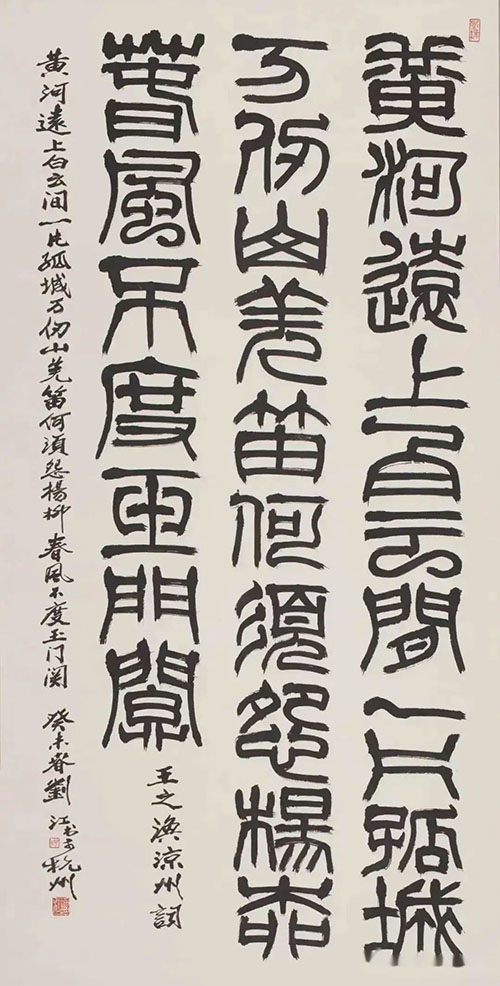 黄河遠上白云間一片孤城
万仞山羌笛何須怨楊柳
春風不度玉門關
王之渙涼州詞
黄河遠上白云间一片孤城万仞山羌笛何須怨楊柳春風不度玉门関 癸未春劉江書于杭州